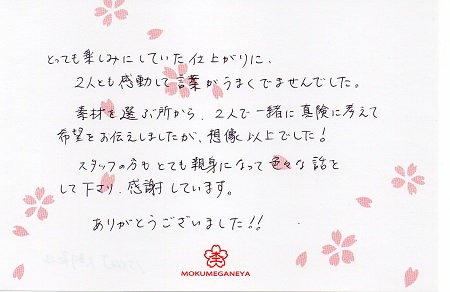 とっても楽しみにしていた仕上がりに、
2人とも感動して言葉がうまくでませんでした。
素材を選ぶ所から、2人で一緒に真険に考えて
希望をお伝えしましたが、想像以上でした!
スタッフの方もとても親身になって色々な話を
して下さり、感謝しています。
ありがとうございました!!
MOKUMEGANEYA